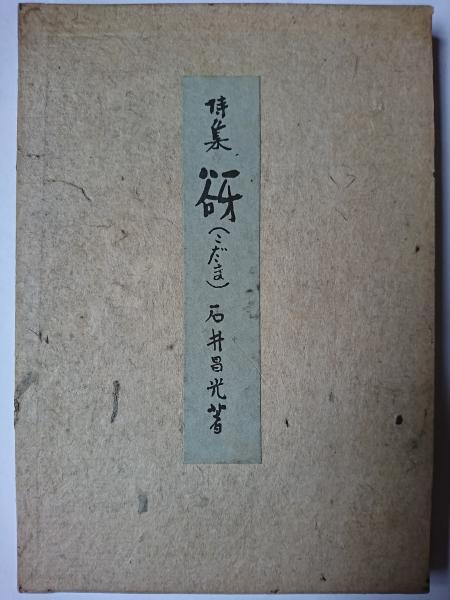 詩集 谺 (こだま) 石井昌光著